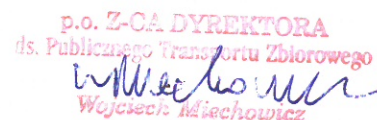 p.o. Z-CA DYREKTORA
ds. Publicznego Transportu Zbiorowego
Wojciech Miechowicz